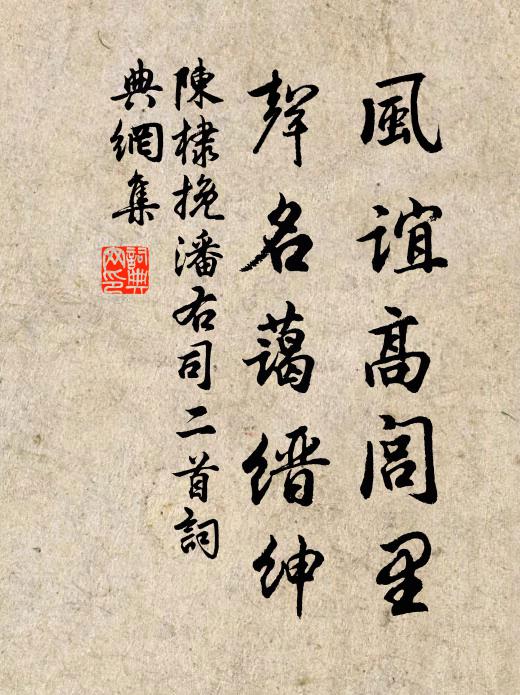 風誼高閭里
聲名藹縉紳
陳棣挽潘右司二首詞
典網集
詞典